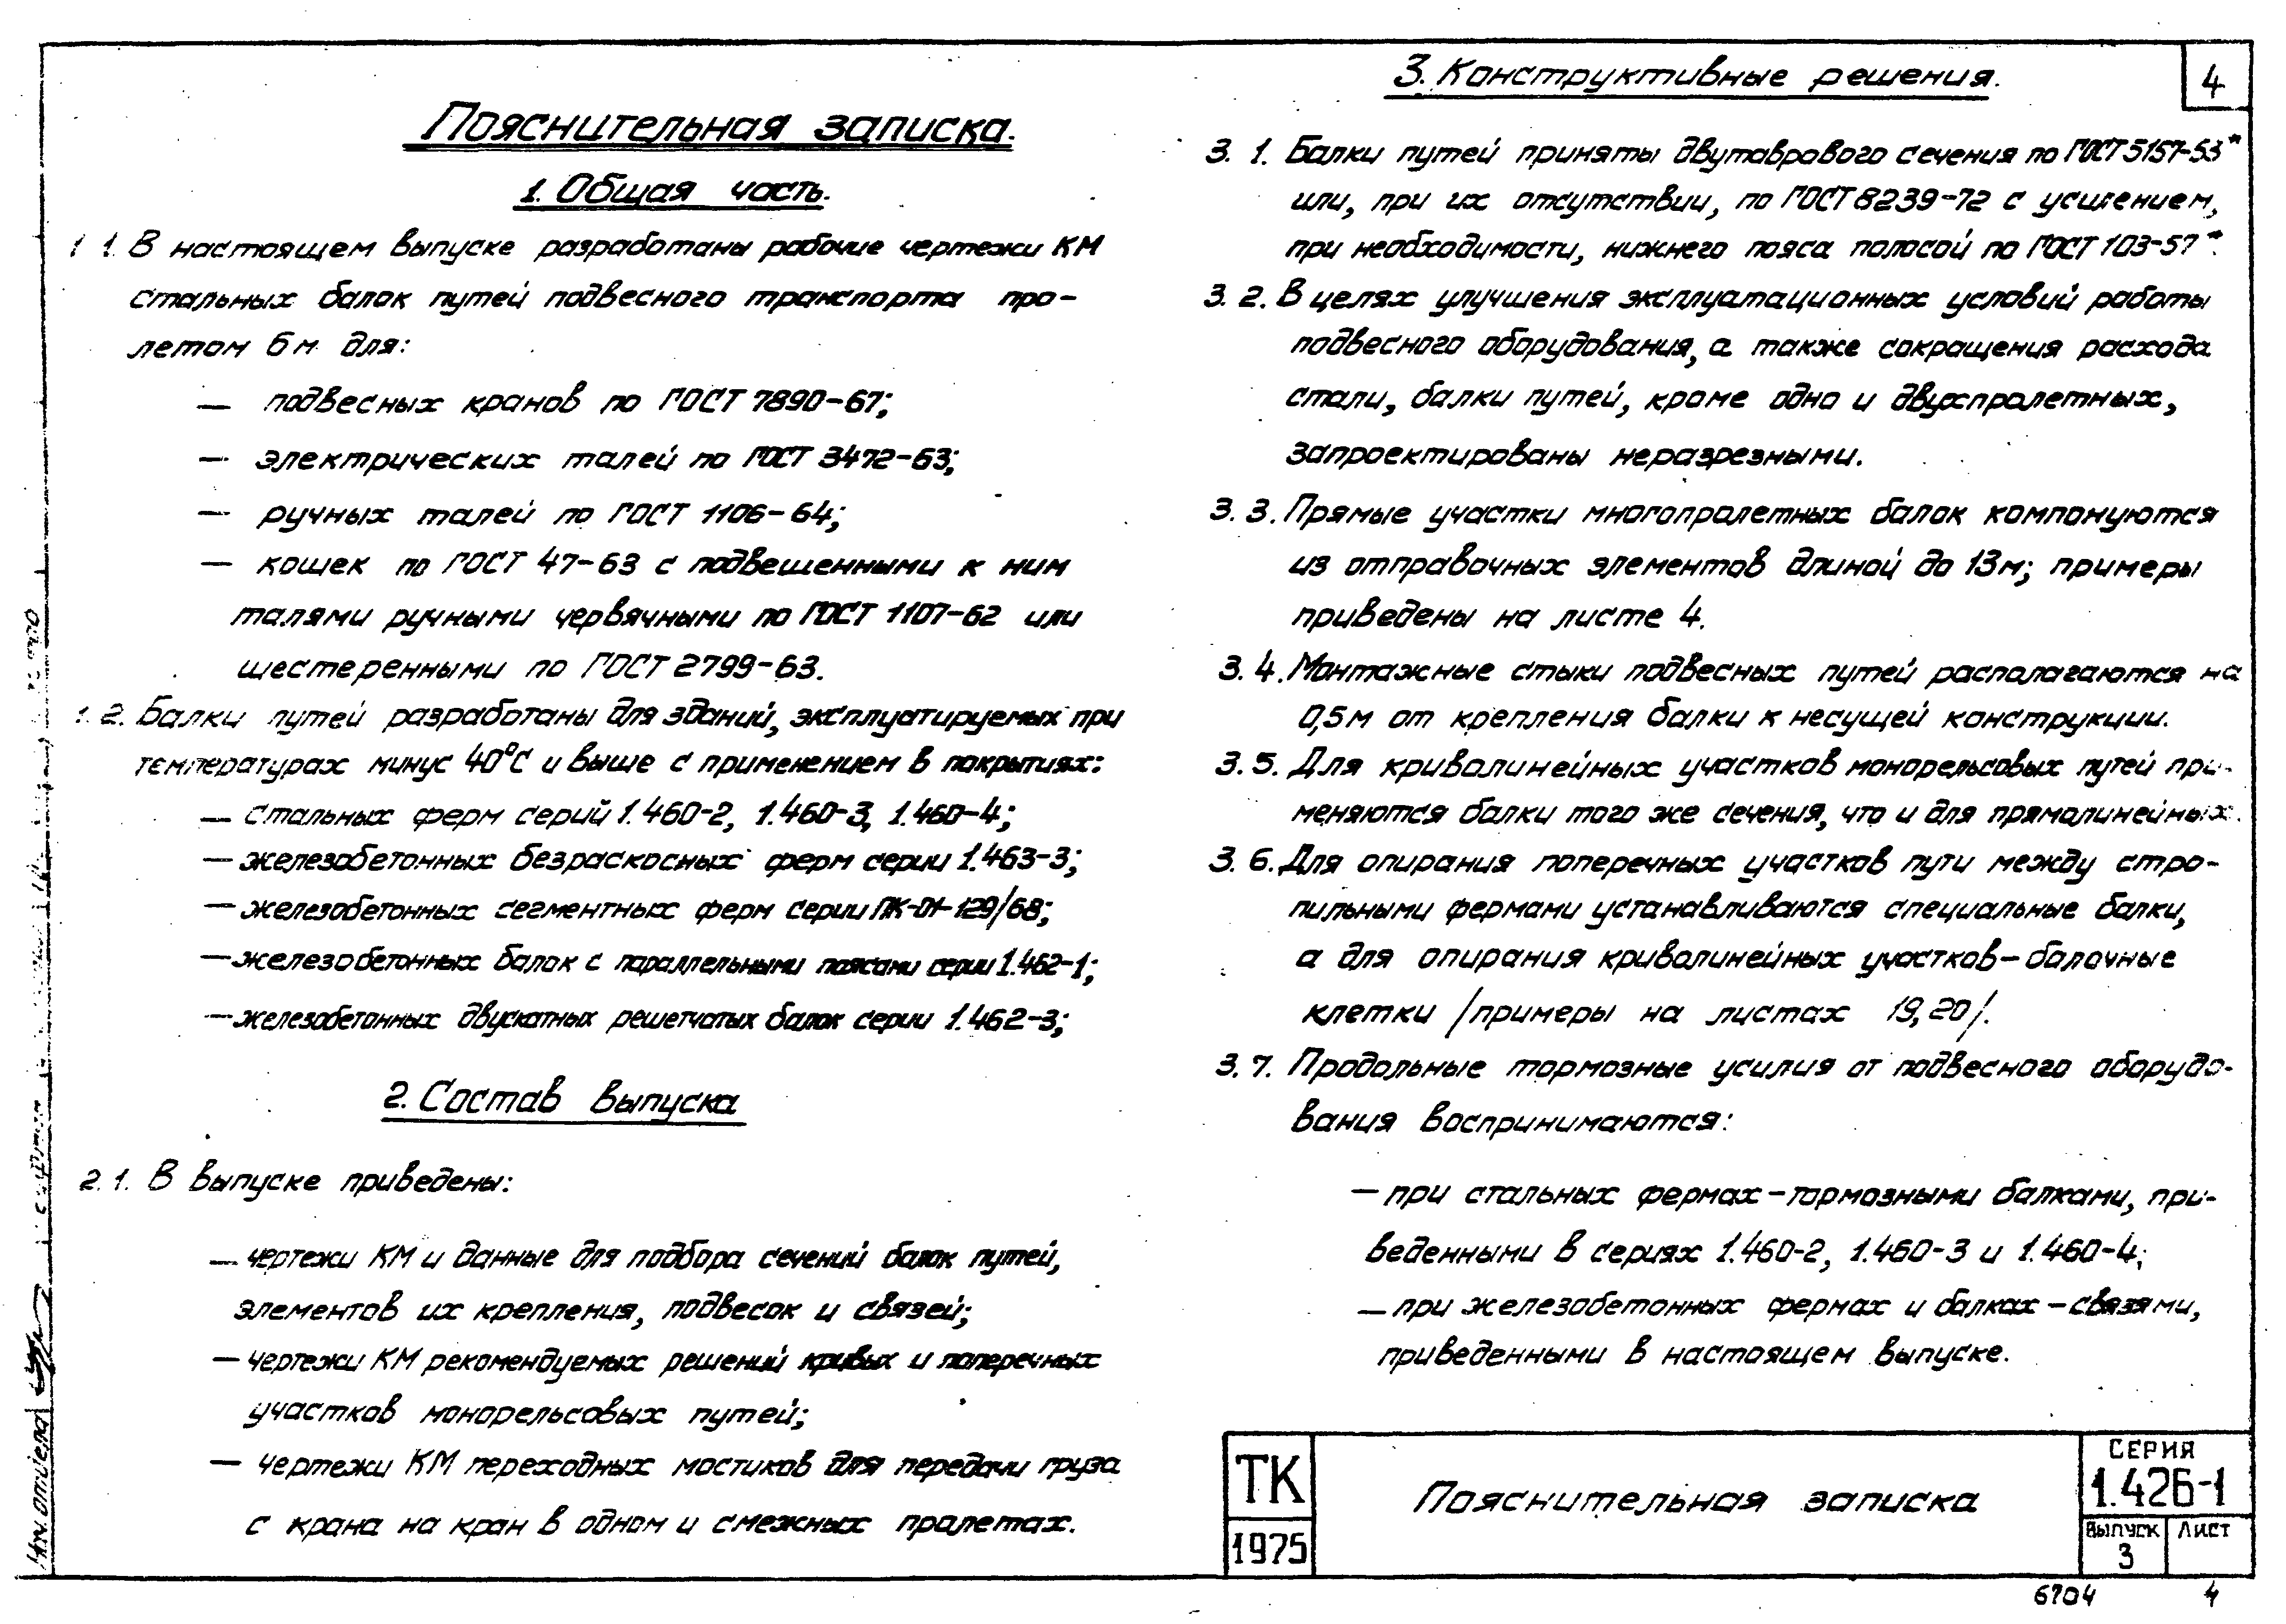 Пояснительная записка.
1. Общая часть.
1 1. В настоящем выпуске разработаны рабочие чертежи КМ
стальных балок путей подвесного транспорта про-
летом 6 м для:
— подвесных кранов по ГОСТ 7890-67;
— электрических талей по ГОСТ 3472-63;
— ручных талей по ГОСТ 1106-64;
— кошек по ГОСТ 47-63 с подвешенными к ним
талями ручными червячными по ГОСТ 1107-62 или
шестеренными по ГОСТ 2799-63.
1. 2. Балки путей разработаны для зданий, эксплуатируемых при
температурах минус 40°С и выше с применением в покрытиях:
— стальных ферм серий 1.460-2, 1.460-3, 1.460-4;
— железобетонных безраскосных ферм серии 1.463-3;
— железобетонных сегментных ферм серии ПК-01-129/68;
— железобетонных балок с параллельными поясами серии 1.462-1;
— железобетонных двускатных решетчатых балок серии 1.462-3;
2. Состав выпуска
2. 1. В выпуске приведены:
— чертежи КМ и данные для подбора сечений балок путей,
элементов их крепления, подвесок и связей;
— чертежи КМ рекомендуемых решений кривых и поперечных
участков монорельсовых путей;
— чертежи КМ переходных мостиков для передачи груза
с крана на кран в одном и смежных пролетах.
3. Конструктивные решения.
4
3. 1. Балки путей приняты двутаврового сечения по ГОСТ 5157-53*
или, при их отсутствии, по ГОСТ 8239-72 с усилением,
при необходимости, нижнего пояса полосой по ГОСТ 103-57*.
3. 2. В целях улучшения эксплуатационных условий работы
подвесного оборудования, а также сокращения расхода
стали, балки путей, кроме одно и двухпролетных,
запроектированы неразрезными.
3. 3. Прямые участки многопролетных балок компонуются
из отправочных элементов длиной до 13м; примеры
приведены на листе 4.
3. 4. Монтажные стыки подвесных путей располагаются на
0,5м от крепления балки к несущей конструкции.
3. 5. Для криволинейных участков монорельсовых путей при-
меняются балки того же сечения, что и для прямолинейных.
3. 6. Для опирания поперечных участков пути между стро-
пильными фермами устанавливаются специальные балки,
а для опирания криволинейных участков-балочные
клетки /примеры на листах 19, 20/.
3. 7. Продольные тормозные усилия от подвесного оборудо-
вания воспринимаются:
— при стальных фермах-тормозными балками, при-
веденными в сериях 1.460-2, 1.460-3 и 1.460-4;
— при железобетонных фермах и балках-связями,
приведенными в настоящем выпуске.
ТК
1975
Пояснительная записка
СЕРИЯ
1.426-1
Выпуск Лист
3
6704 4